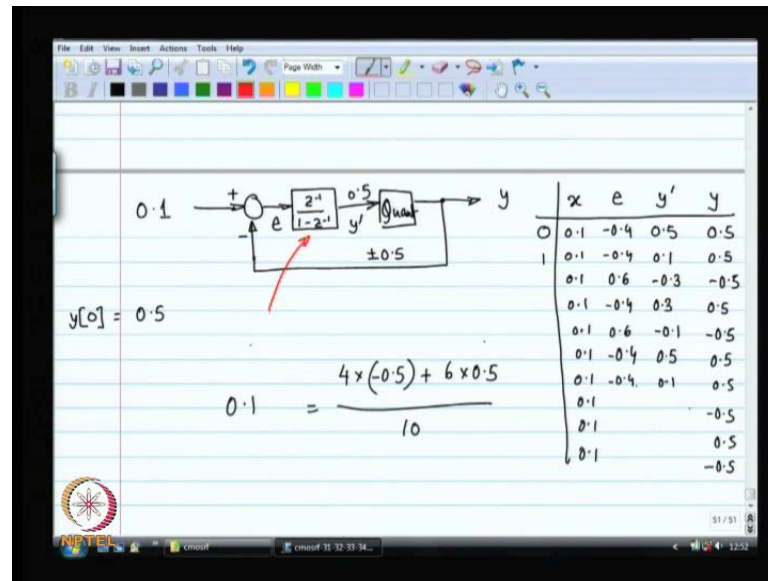 File Edit View Insert Actions Tools Help
Page Width
B I
0.1 + - e z⁻¹ / 1 - z⁻¹ 0.5 y' Quant y
±0.5
y[0] = 0.5
0.1 = 4 × (-0.5) + 6 × 0.5 / 10
x e y' y
0 0.1 -0.4 0.5 0.5
1 0.1 -0.4 0.1 0.5
0.1 0.6 -0.3 -0.5
0.1 -0.4 0.3 0.5
0.1 0.6 -0.1 -0.5
0.1 -0.4 0.5 0.5
0.1 -0.4. 0.1 0.5
0.1 -0.5
0.1 0.5
0.1 -0.5
51 / 51
NPTEL
cmosrf
cmosrf-31-32-33-34...
12:52